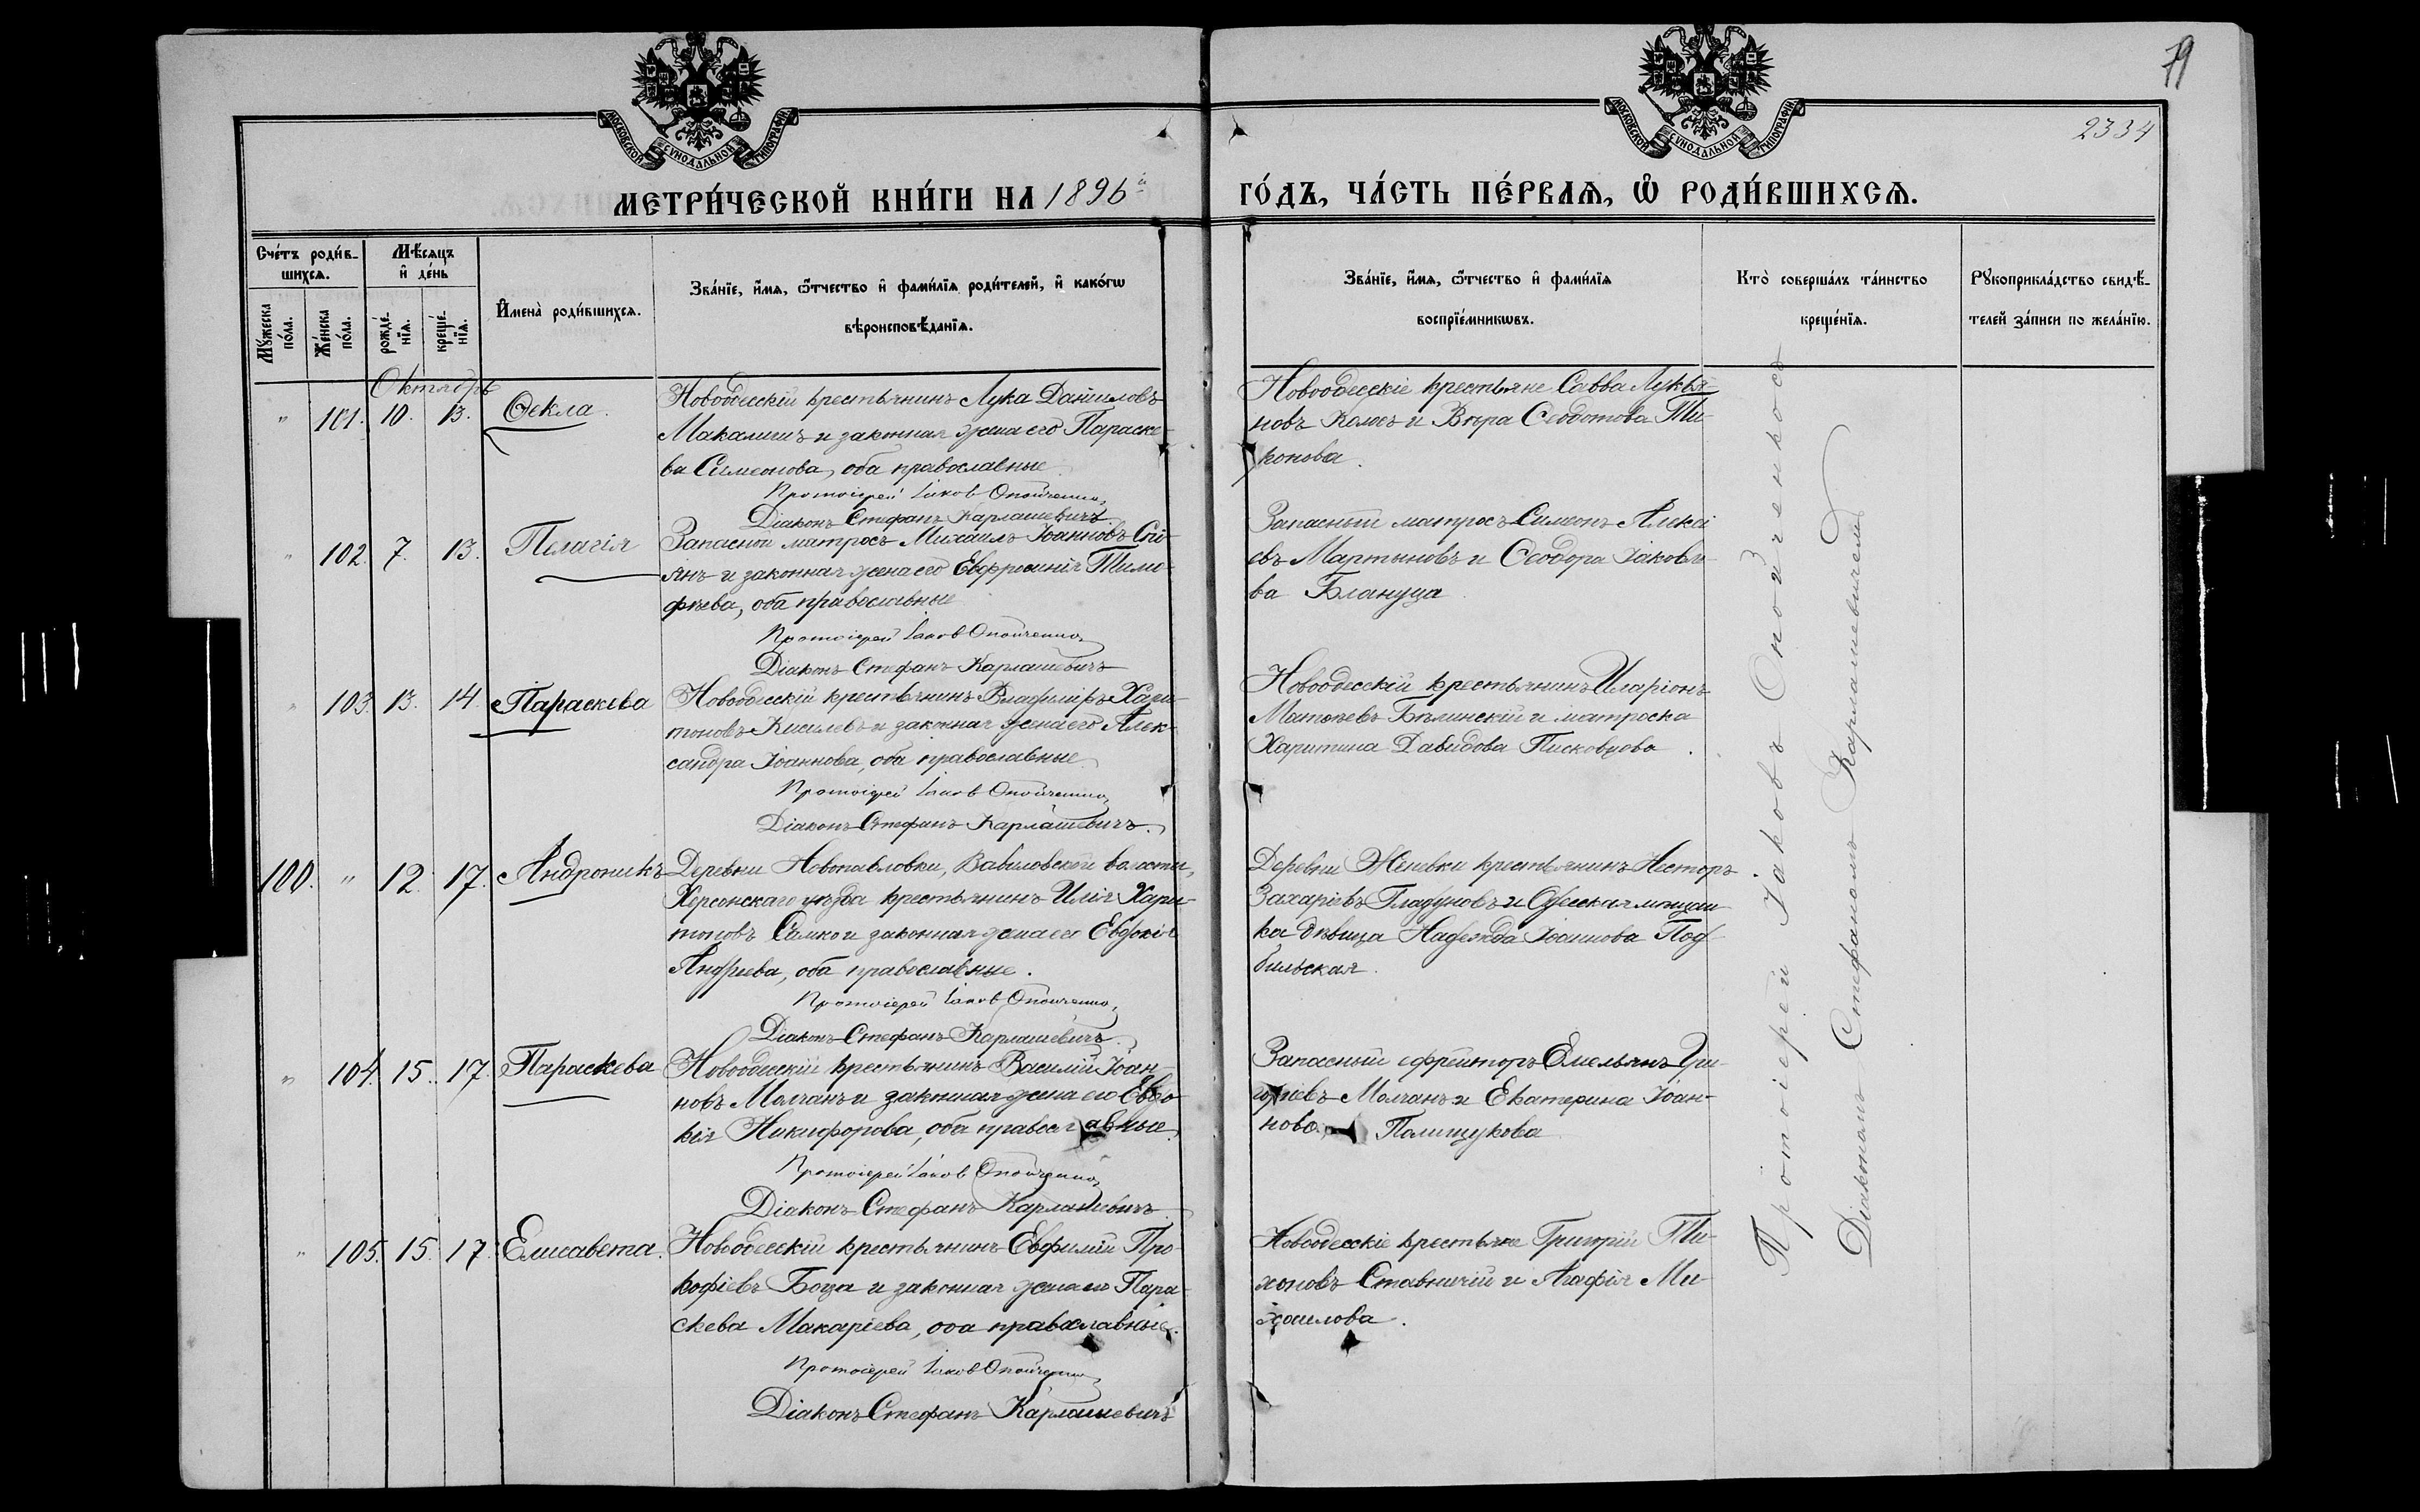 79
2334
МОСКОВСКОЙ СУНОДАЛЬНОЙ ТИПОГРАФІИ
МОСКОВСКОЙ СУНОДАЛЬНОЙ ТИПОГРАФІИ
МЕТРИ́ЧЕСКОЙ КНИ́ГИ НА 1896й ГО́ДЪ, ЧА́СТЬ ПЕ́РВАѦ, Ѡ҆ РОДИ́ВШИХСѦ.
Счетъ роди́в-
шихсѧ.
Мꙋ́жеска по́ла.
Же́нска по́ла.
Мѣ́сѧцъ
и҆ де́нь
рожде́-
нїѧ.
креще́-
нїѧ.
И҆мена̀ роди́вшихсѧ.
Зва́нїе, и҆́мѧ, ѻ҆́тчество и҆ фами́лїѧ роди́телей, и҆ како́гѡ
вѣроисповѣ́данїѧ.
Зва́нїе, и҆́мѧ, ѻ҆́тчество и҆ фами́лїѧ
воспрїе́мникѡвъ.
Кто̀ соверша́лъ та́инство
креще́нїѧ.
Рꙋкоприкла́дство свидѣ́-
телей за́писи по жела́нїю.
Октябрь
" 101. 10. 13. Ѳекла.
Новоодесскій крестьянинъ Лука Даніиловъ
и законная жена его Параске-
ва Симеонова, оба православные
Протоіерей Іаковъ Опойченко
Діаконъ Стефанъ Карлашевичъ
Новоодесскіе крестьяне Савва Лукья-
новъ Колосъ и Вѣра Ѳеодотова Ти-
конова.
" 102. 7. 13. Пелагія
Запасной матросъ Михаилъ Іоанновъ Сті-
янъ и законная жена его Евфросинія Тимо-
фѣева, оба православные
Протоіерей Іаковъ Опойченко
Діаконъ Стефанъ Карлашевичъ
Запасный матросъ Симеонъ Алексі-
евъ Мартыновъ и Ѳеодора Іаковле-
ва Блануца
" 103. 13. 14. Параскева
Новоодесскій крестьянинъ Владиміръ Хари-
тоновъ Киселевъ и законная жена его Алек-
сандра Іоаннова, оба православные
Протоіерей Іаковъ Опойченко
Діаконъ Стефанъ Карлашевичъ.
Новоодесскій крестьянинъ Иларіонъ
Матѳеевъ Бѣлинскій и матроска
Харитина Давидова Писковцова.
100. " 12. 17. Андроникъ
Деревни Новопавловки, Вавиловской волости,
Херсонскаго уѣзда крестьянинъ Илія Хари-
тоновъ Самко и законная жена его Евдокія
Андреева, оба православные.
Протоіерей Іаковъ Опойченко
Діаконъ Стефанъ Карлашевичъ.
Деревни Женевки крестьянинъ Несторъ
Захаріевъ Гладуновъ и Одесская мѣщан-
ка дѣвица Надежда Іоаннова Под-
бильская.
" 104. 15. 17. Параскева
Новоодесскій крестьянинъ Василій Іоан-
новъ Молчанъ и законная жена его Евдо-
кія Никифорова, оба православные.
Протоіерей Іаковъ Опойченко
Діаконъ Стефанъ Карлашевичъ
Запасный ефрейторъ Емельянъ Гри-
горіевъ Молчанъ и Екатерина Іоан-
нова Полищукова
" 105. 15. 17. Елисавета.
Новоодесскій крестьянинъ Евфимій Про-
кофіевъ Боца и законная жена его Пара-
скева Макаріева, оба православные.
Протоіерей Іаковъ Опойченко
Діаконъ Стефанъ Карлашевичъ
Новоодесскіе крестьяне Григорій Ти-
хоновъ Ставничій и Агафія Ми-
хаилова.
Протоіерей Іаковъ Опойченко съ
Діакономъ Стефаномъ Карлашевичемъ